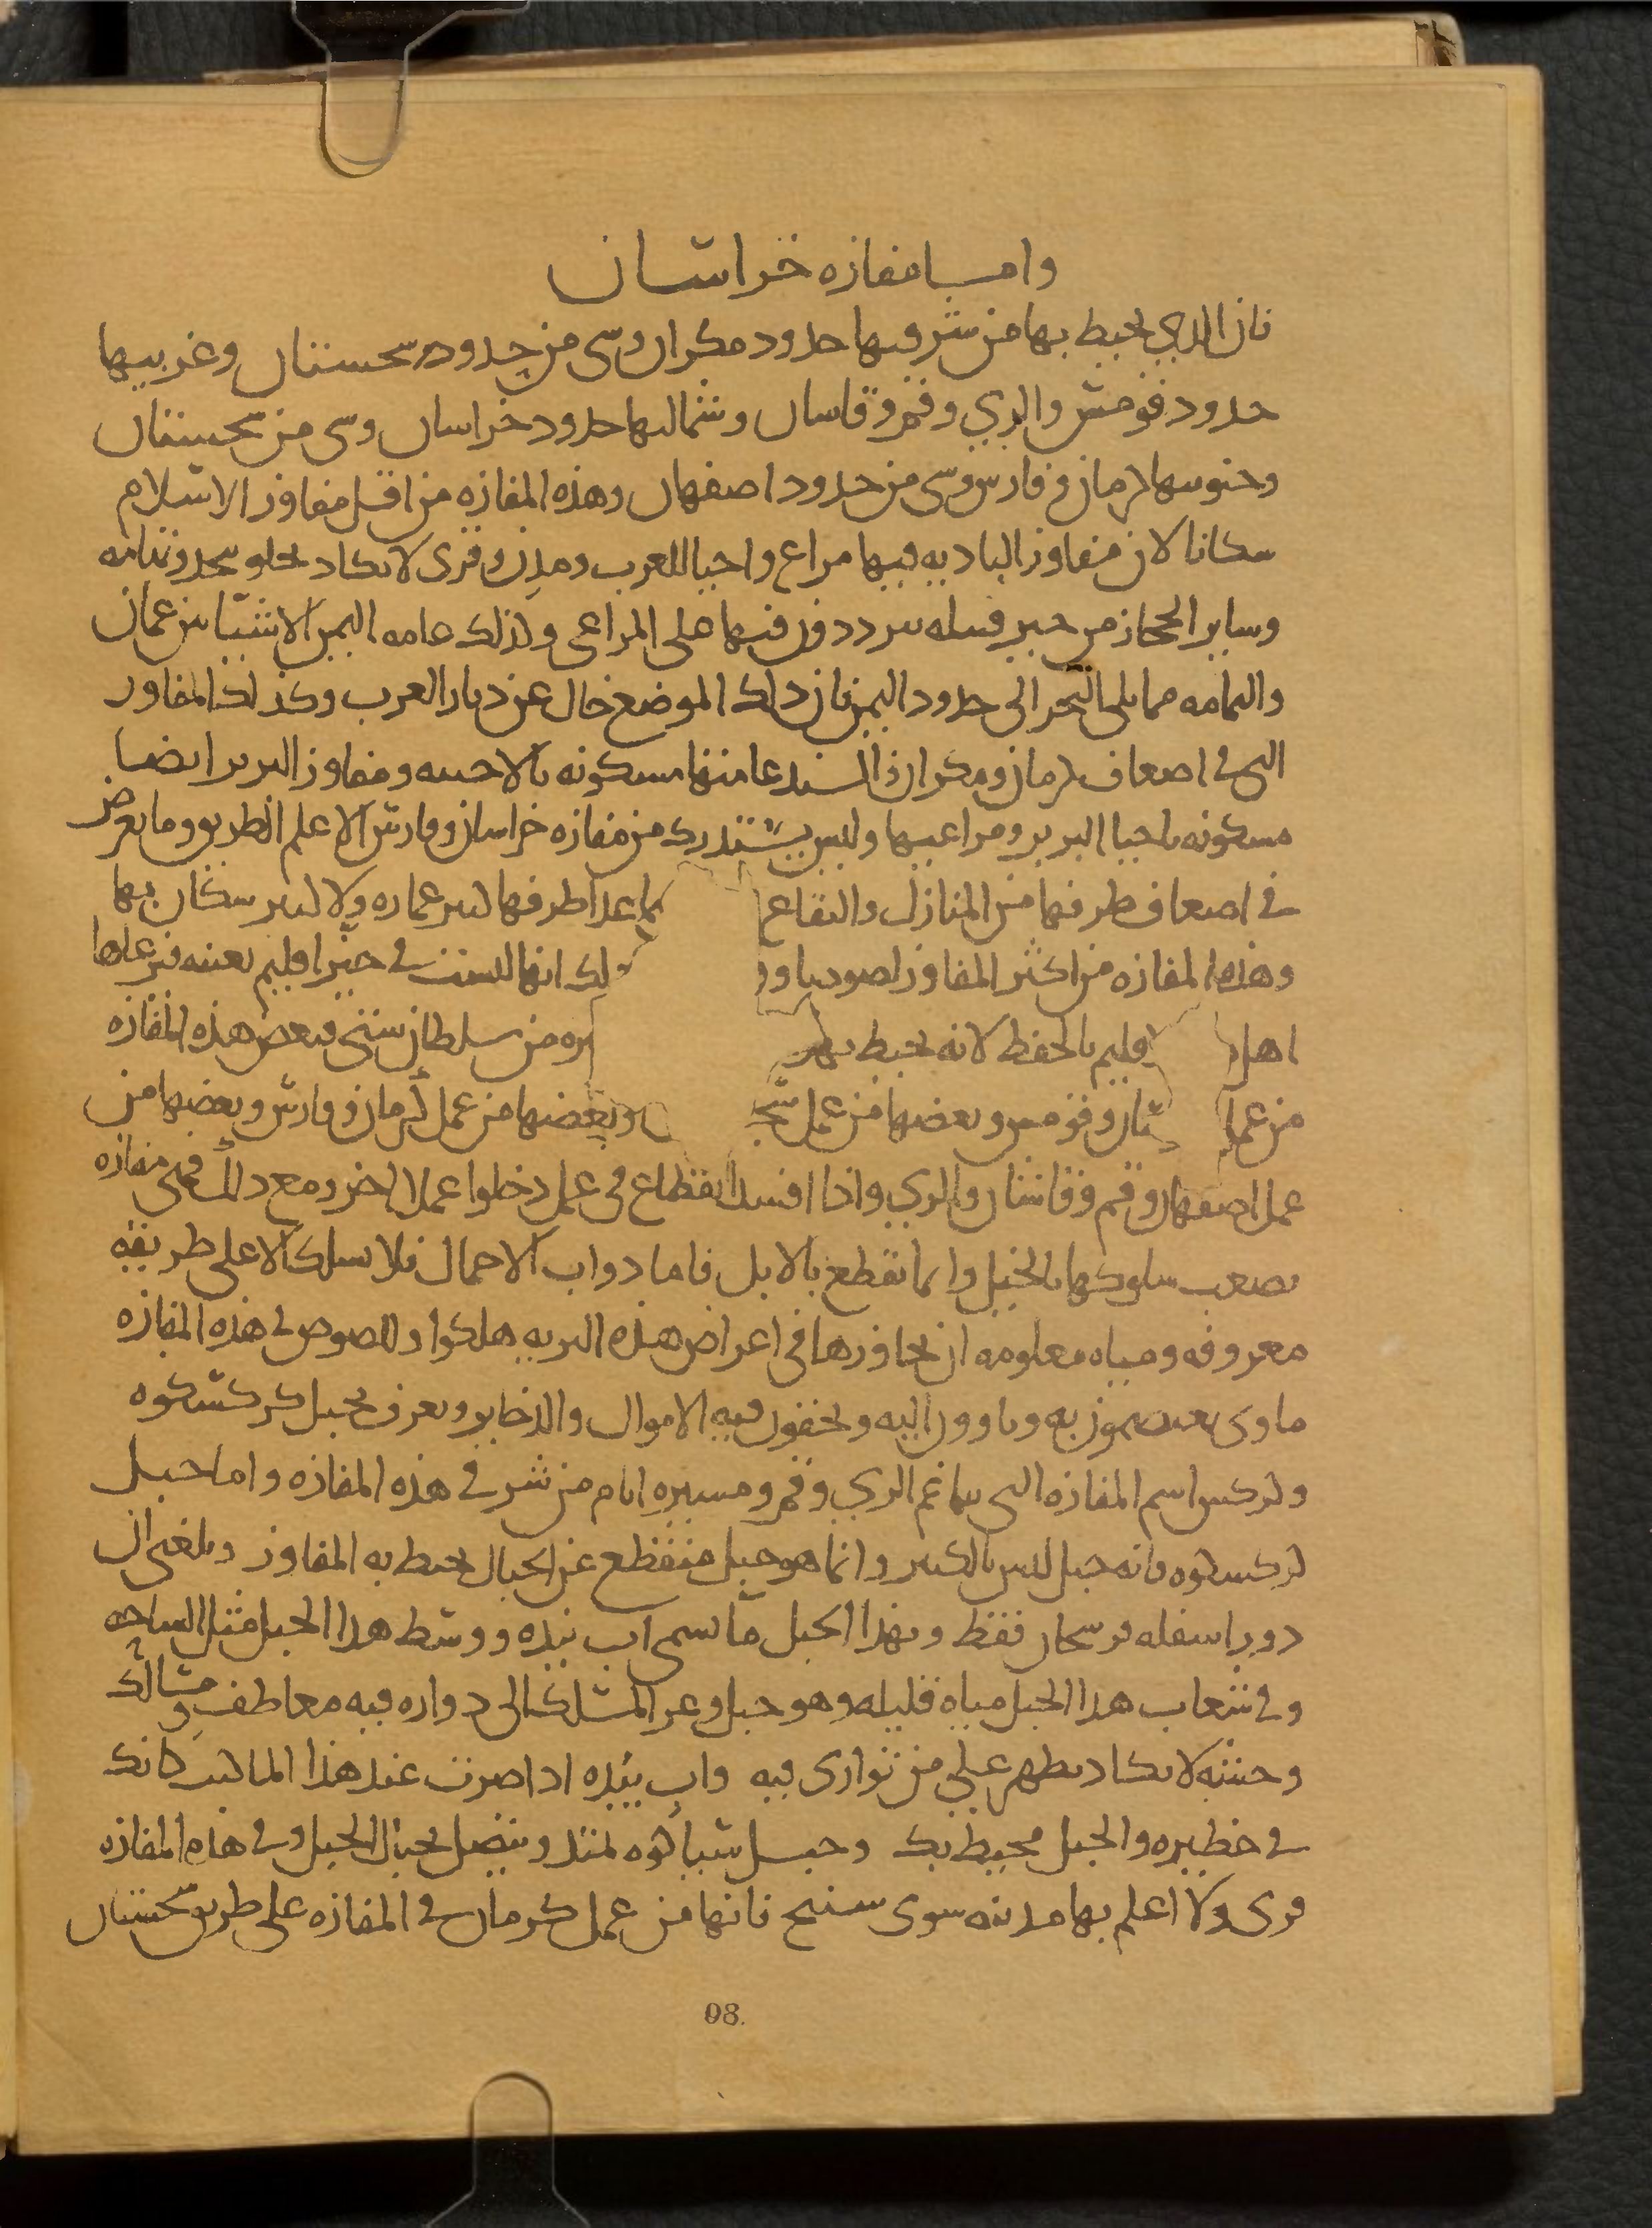 واما مفازه خراسان
فان الذي يحيط بها من شرقيها حدود مكران وشي من حدود سجستان وغربيها
حدود قومس والري وقم وقاسان وشماليها حدود خراسان وشي من سجستان
وجنوبيها كرمان وفارس وشي من حدود اصفهان وهذه المفازه من اقل مفاوز الاسلام
سكانا لان مفاوز الباديه فيها مراع واحيا للعرب ومدن وقرى لا يكاد يخلو نجد وتهامه
وساير الحجاز من حيز قبيله يترددون فيها على المراعي وكذلك عامه اليمن الا شيا بين عمان
واليمامه مما يلي البحر الى حدود اليمن فان ذلك الموضع خال عن ديار العرب وكذلك المفاوز
التي في اضعاف كرمان ومكران والسند عامتها مسكونه بالاخبيه ومفاوز البربر ايضا
مسكونه باحيا البربر ومراعيها وليس يستدرك من مفازه خراسان وفارس الا علم الطريق وما يعرض
في اضعاف طرفها من المنازل والبقاع كما عدا طرفها ليس عماره ولا لبر سكان بها
وهذه المفازه من اكثر المفاوز لصوصا و لك انها ليست في حيز اقليم بعينه فيرعاها
اهل قليم بالحفظ لانه يحيط بهـ ـره من سلطان شتى فبعض هذه المفازه
من عمل ـسان وقومس وبعضها من عمل سجـ ـن وبعضها من عمل كرمان وفارس وبعضها من
عمل اصفهان وقم وقاشان والري واذا افسد القطاع في عمل دخلوا عملا اخر ومع ذلك فهي مفازه
يصعب سلوكها بالخيل وانما تقطع بالابل فاما دواب الاحمال فلا تسلك الا على طريقه
معروفه ومياه معلومه ان تجاوزها في اعراض هذه البريه هلكوا وللصوص في هذه المفازه
ماوى يعتصمون به وياوون اليه ويخفون فيه الاموال والذخاير ويعرف بجبل كركسكوه
وكركس اسم المفازه التي تتاخم الري وقم ومسيره ايام من شر في هذه المفازه واما جبل
كركسكوه فانه جبل ليس بالكبير وانما هو جبل منقطع عن الجبال يحيط به المفاوز وبلغني ان
دور اسفله فرسخان فقط وبهذا الجبل ما يسمى اب بيده ووسط هذا الجبل مثل الساحه
وفي شعاب هذا الجبل مياه قليله وهو جبل وعر المسلك الى دواره فيه معاطف ومسالك
وحشه لا يكاد يظهر على من توارى فيه واب بيده اذا صرت عند هذا الما كنت كانك
في حظيره والجبل محيط بك وجبل سياكوه يمتد ويتصل بجبال الجبل وفي هذه المفازه
قرى ولا اعلم بها مدينه سوى سنيج فانها من عمل كرمان في المفازه على طريق سجستان
98.